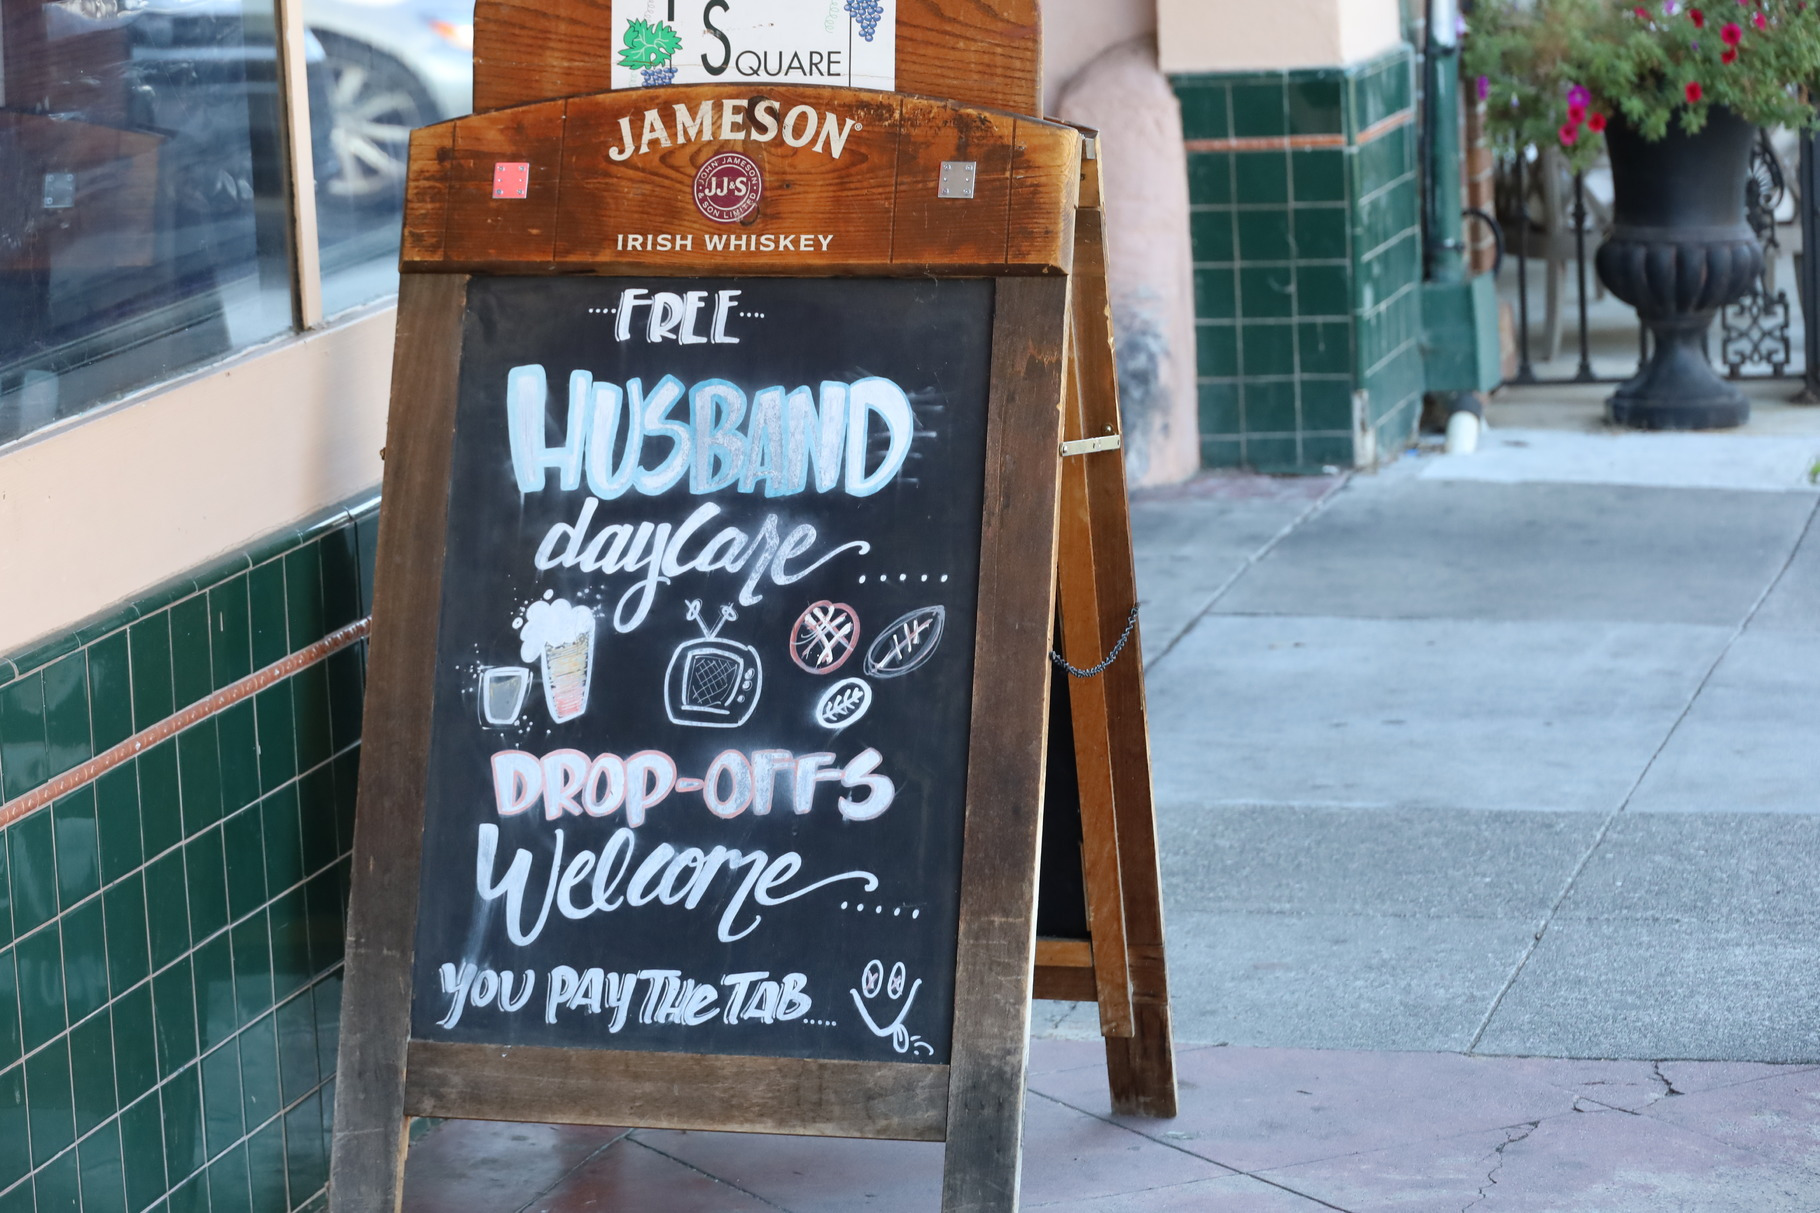 SQUARE
JAMESON®
JOHN JAMESON
JJ&S
SON LIMITED
IRISH WHISKEY
....FREE....
HUSBAND
daycare.....
DROP-OFFS
Welcome.....
YOU PAY THE TAB.....